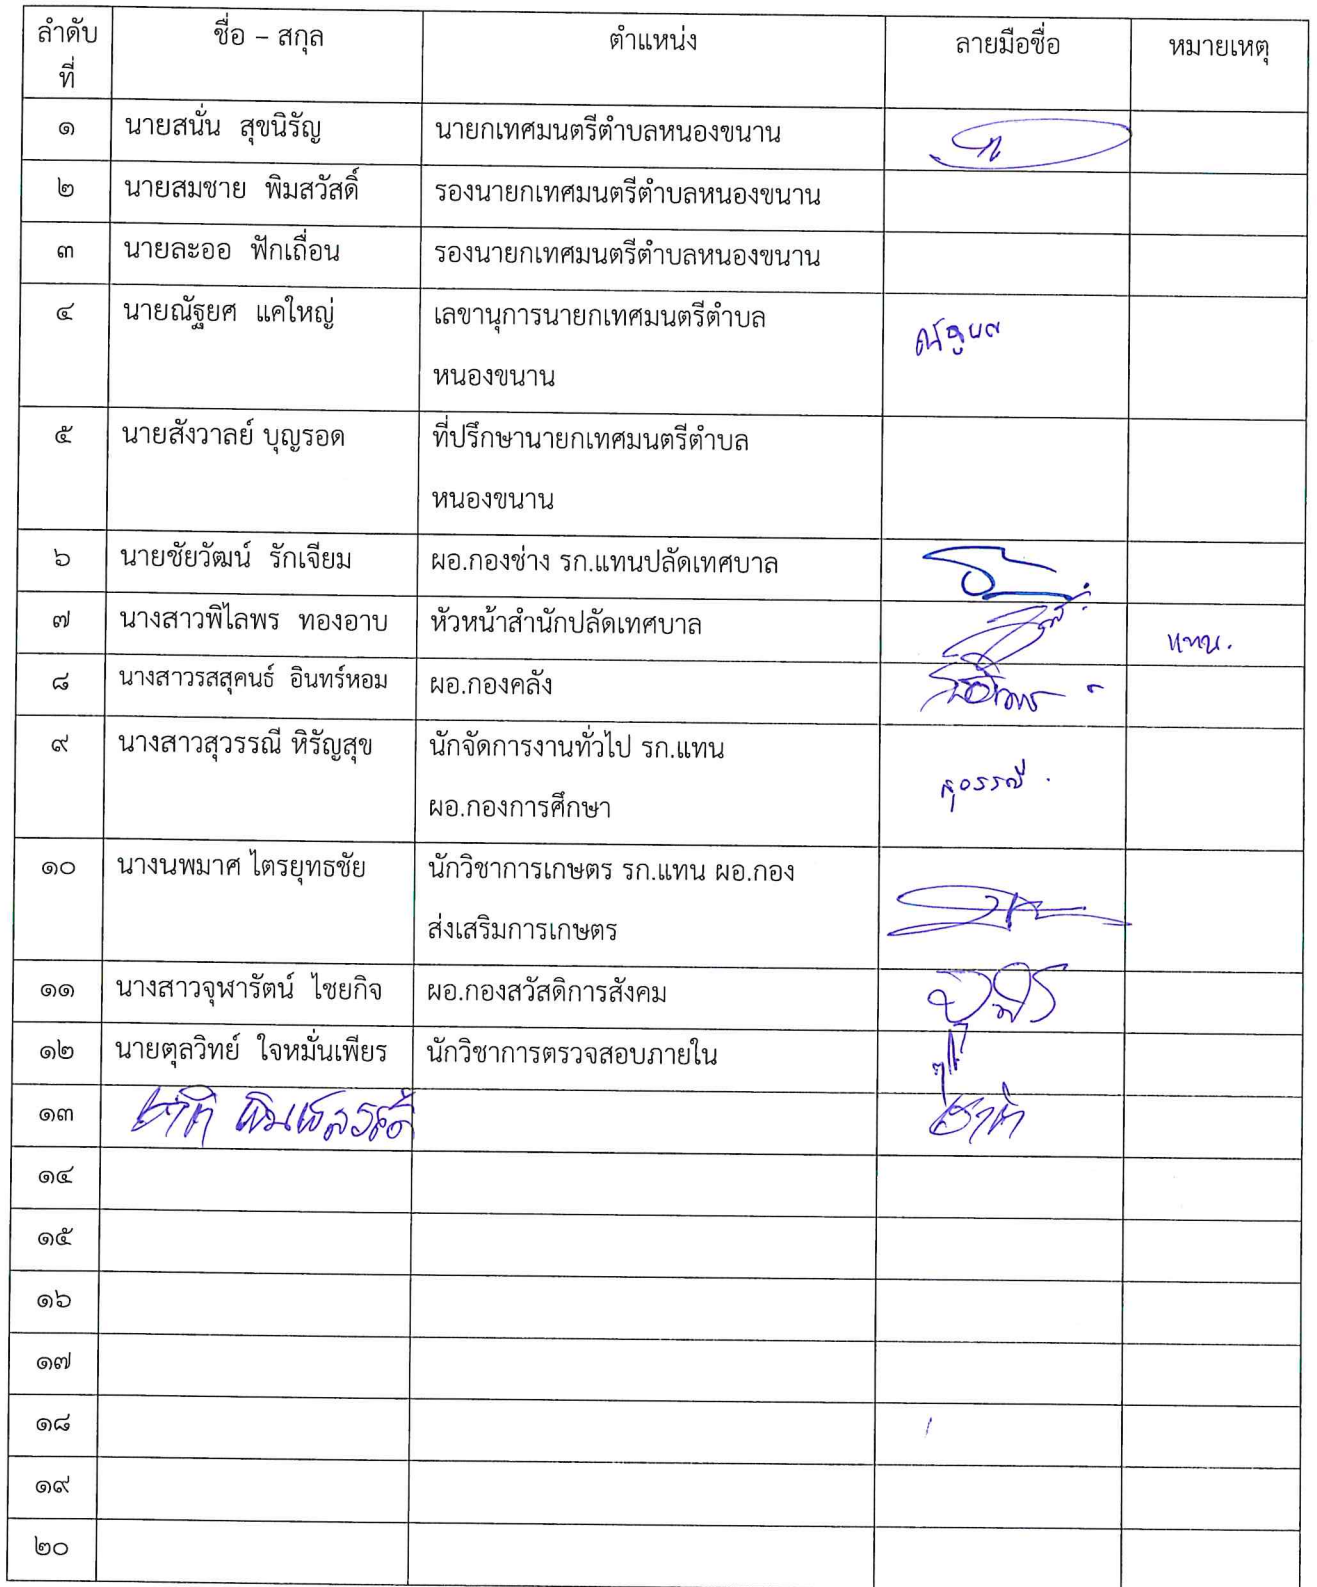 ลำดับ ชื่อ – สกุล ตำแหน่ง ลายมือชื่อ หมายเหตุ
ที่
๑ นายสนั่น สุขนิรัญ นายกเทศมนตรีตำบลหนองขนาน
๒ นายสมชาย พิมสวัสดิ์ รองนายกเทศมนตรีตำบลหนองขนาน
๓ นายละออ ฟักเถื่อน รองนายกเทศมนตรีตำบลหนองขนาน
๔ นายณัฐยศ แคใหญ่ เลขานุการนายกเทศมนตรีตำบล
หนองขนาน
๕ นายสังวาลย์ บุญรอด ที่ปรึกษานายกเทศมนตรีตำบล
หนองขนาน
๖ นายชัยวัฒน์ รักเจียม ผอ.กองช่าง รก.แทนปลัดเทศบาล
๗ นางสาวพิไลพร ทองอาบ หัวหน้าสำนักปลัดเทศบาล แทน.
๘ นางสาวรสสุคนธ์ อินทร์หอม ผอ.กองคลัง
๙ นางสาวสุวรรณี หิรัญสุข นักจัดการงานทั่วไป รก.แทน สุวรรณี
ผอ.กองการศึกษา
๑๐ นางนพมาศ ไตรยุทธชัย นักวิชาการเกษตร รก.แทน ผอ.กอง
ส่งเสริมการเกษตร
๑๑ นางสาวจุฬารัตน์ ไชยกิจ ผอ.กองสวัสดิการสังคม
๑๒ นายตุลวิทย์ ใจหมั่นเพียร นักวิชาการตรวจสอบภายใน
๑๓
๑๔
๑๕
๑๖
๑๗
๑๘
๑๙
๒๐